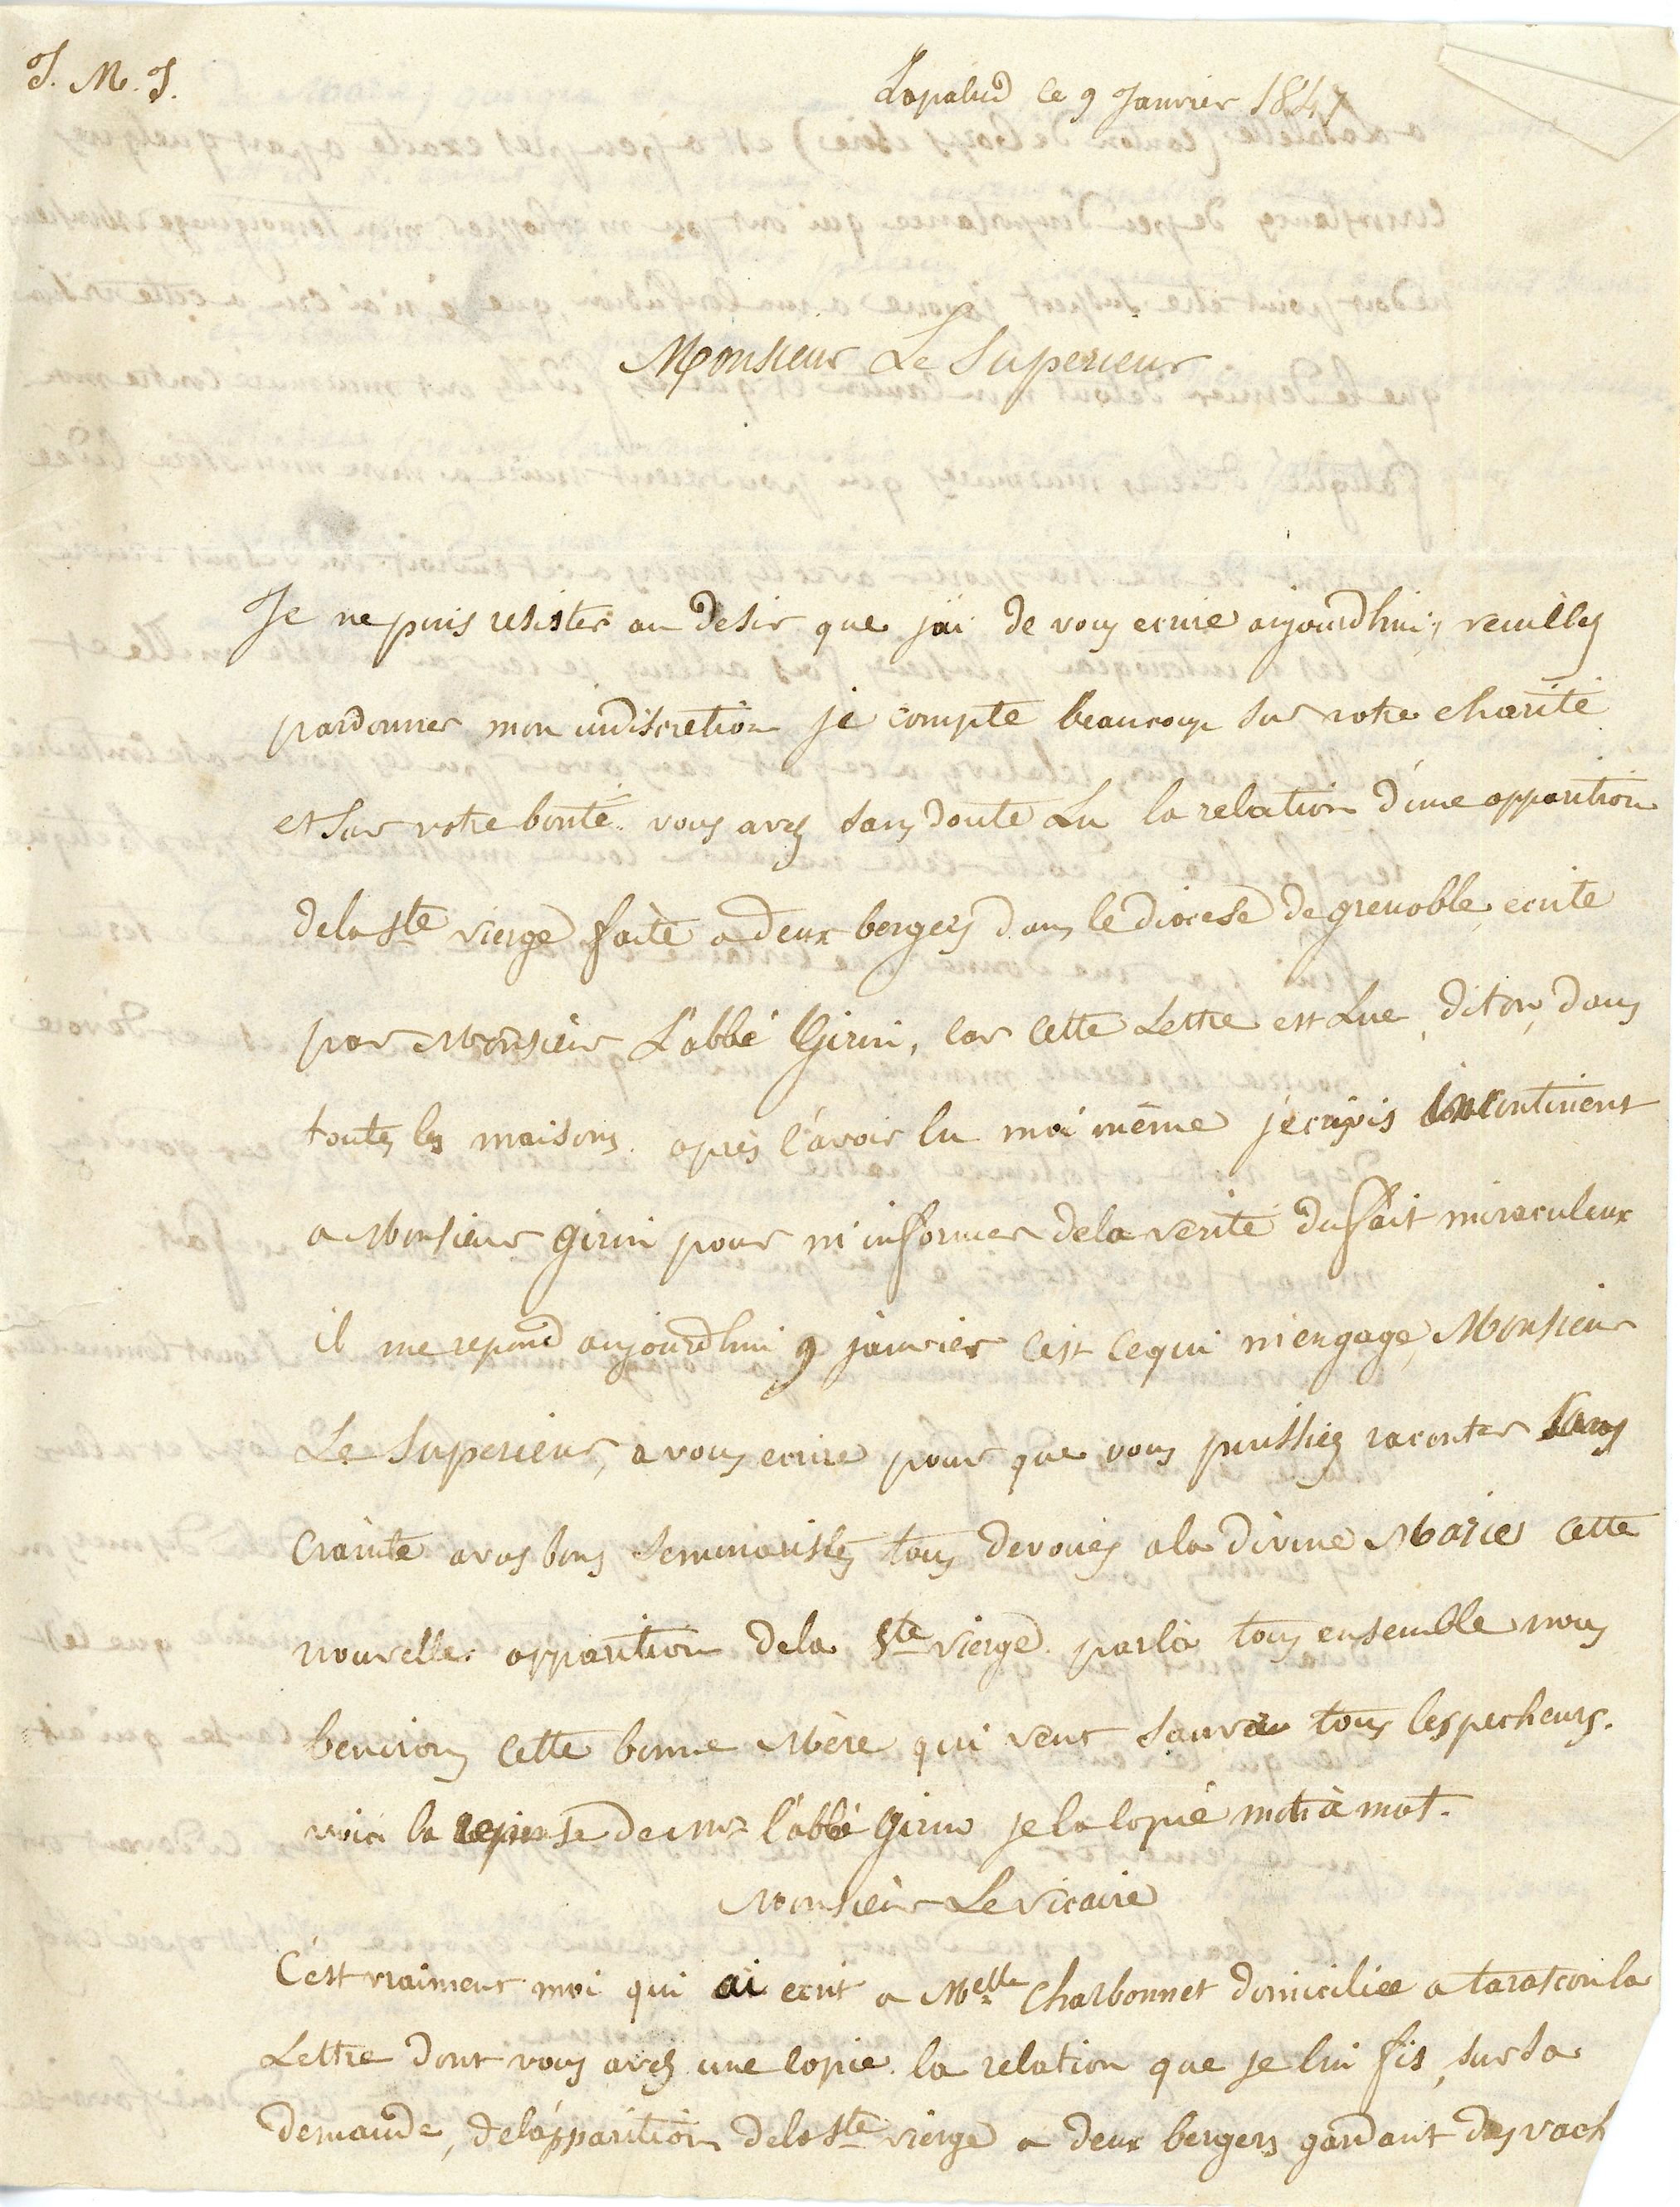 J. M. J.
Lapalud le 9 Janvier 1847
Monsieur Le Superieur
Je ne puis resister au desir que jai de vous ecrire aujourdhui, veuillez
pardonner mon indiscretion je compte beaucoup sur votre charité
et sur votre bonté. vous avez sans doute Lu la relation d'une apparition
dela Ste vierge faite a deux bergers dans le diocese de grenoble, ecrite
par Monsieur L'abbé Girin, car cette Lettre est Lue, diton, dans
toutes les maisons. après l'avoir lu moi même j'ecrivis incontinent
a Monsieur girin pour m'informer dela verité du fait miraculeux
il me repond aujourdhui 9 janvier c'est cequi m'engage, Monsieur
Le Superieur, a vous ecrire pour que vous puissiez raconter sans
crainte avos bons seminaristes tous devoués ala divine Marie cette
nouvelle apparition dela Ste vierge. parlà tous ensemble nous
benirons cette bonne Mère qui veut sauver tous les pecheurs.
voici la reponse de mr l'abbé Girin je la copie mot à mot.
Monsieur Le vicaire
C'est vraiment moi qui ai ecrit a Melle Charbonnet domiciliée a tarascon la
Lettre dont vous avez une copie. la relation que je lui fis, sur sa
demande, de l'apparition dela Ste vierge a deux bergers gardant des vach